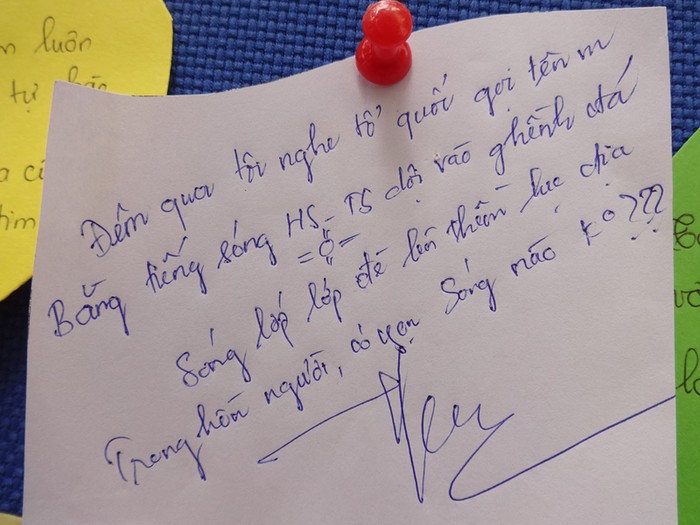 n luôn
tự
a c
tim
Đêm qua tôi nghe tổ quốc gọi tên m
Bằng tiếng sóng HS_TS dội vào ghềnh đá
Sóng lớp lớp đè lên thềm lục địa
Trong hồn người, có ngọn sóng nào ko???
và
lo